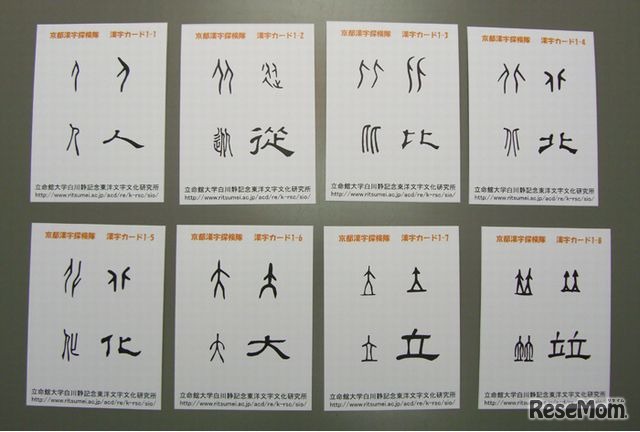 京都漢字探検隊 漢字カード1-1
人
立命館大学白川静記念東洋文字文化研究所
http://www.ritsumei.ac.jp/acd/re/k-rsc/sio/
京都漢字探検隊 漢字カード1-2
從
立命館大学白川静記念東洋文字文化研究所
http://www.ritsumei.ac.jp/acd/re/k-rsc/sio/
京都漢字探検隊 漢字カード1-3
比
立命館大学白川静記念東洋文字文化研究所
http://www.ritsumei.ac.jp/acd/re/k-rsc/sio/
京都漢字探検隊 漢字カード1-4
北
立命館大学白川静記念東洋文字文化研究所
http://www.ritsumei.ac.jp/acd/re/k-rsc/sio/
京都漢字探検隊 漢字カード1-5
化
立命館大学白川静記念東洋文字文化研究所
http://www.ritsumei.ac.jp/acd/re/k-rsc/sio/
京都漢字探検隊 漢字カード1-6
大
立命館大学白川静記念東洋文字文化研究所
http://www.ritsumei.ac.jp/acd/re/k-rsc/sio/
京都漢字探検隊 漢字カード1-7
立
立命館大学白川静記念東洋文字文化研究所
http://www.ritsumei.ac.jp/acd/re/k-rsc/sio/
京都漢字探検隊 漢字カード1-8
竝
立命館大学白川静記念東洋文字文化研究所
http://www.ritsumei.ac.jp/acd/re/k-rsc/sio/
ReseMom